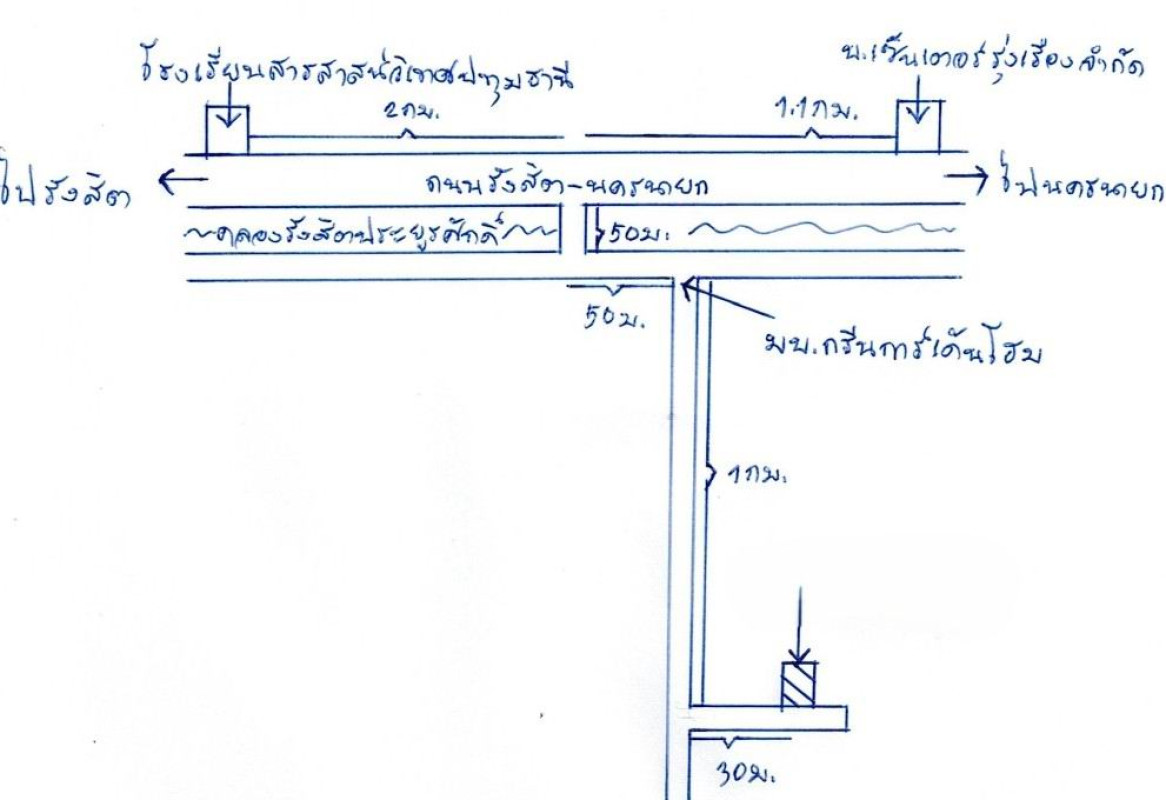 โรงเรียนสารสาสน์วิเทศปทุมธานี
บ.เซ็นเตอร์รุ่งเรืองจำกัด
2กม.
1.1กม.
ไปรังสิต
ถนนรังสิต-นครนายก
ไปนครนายก
คลองรังสิตประยูรศักดิ์
50ม.
50ม.
มบ.กรีนการ์เด้นโฮม
1กม.
30ม.